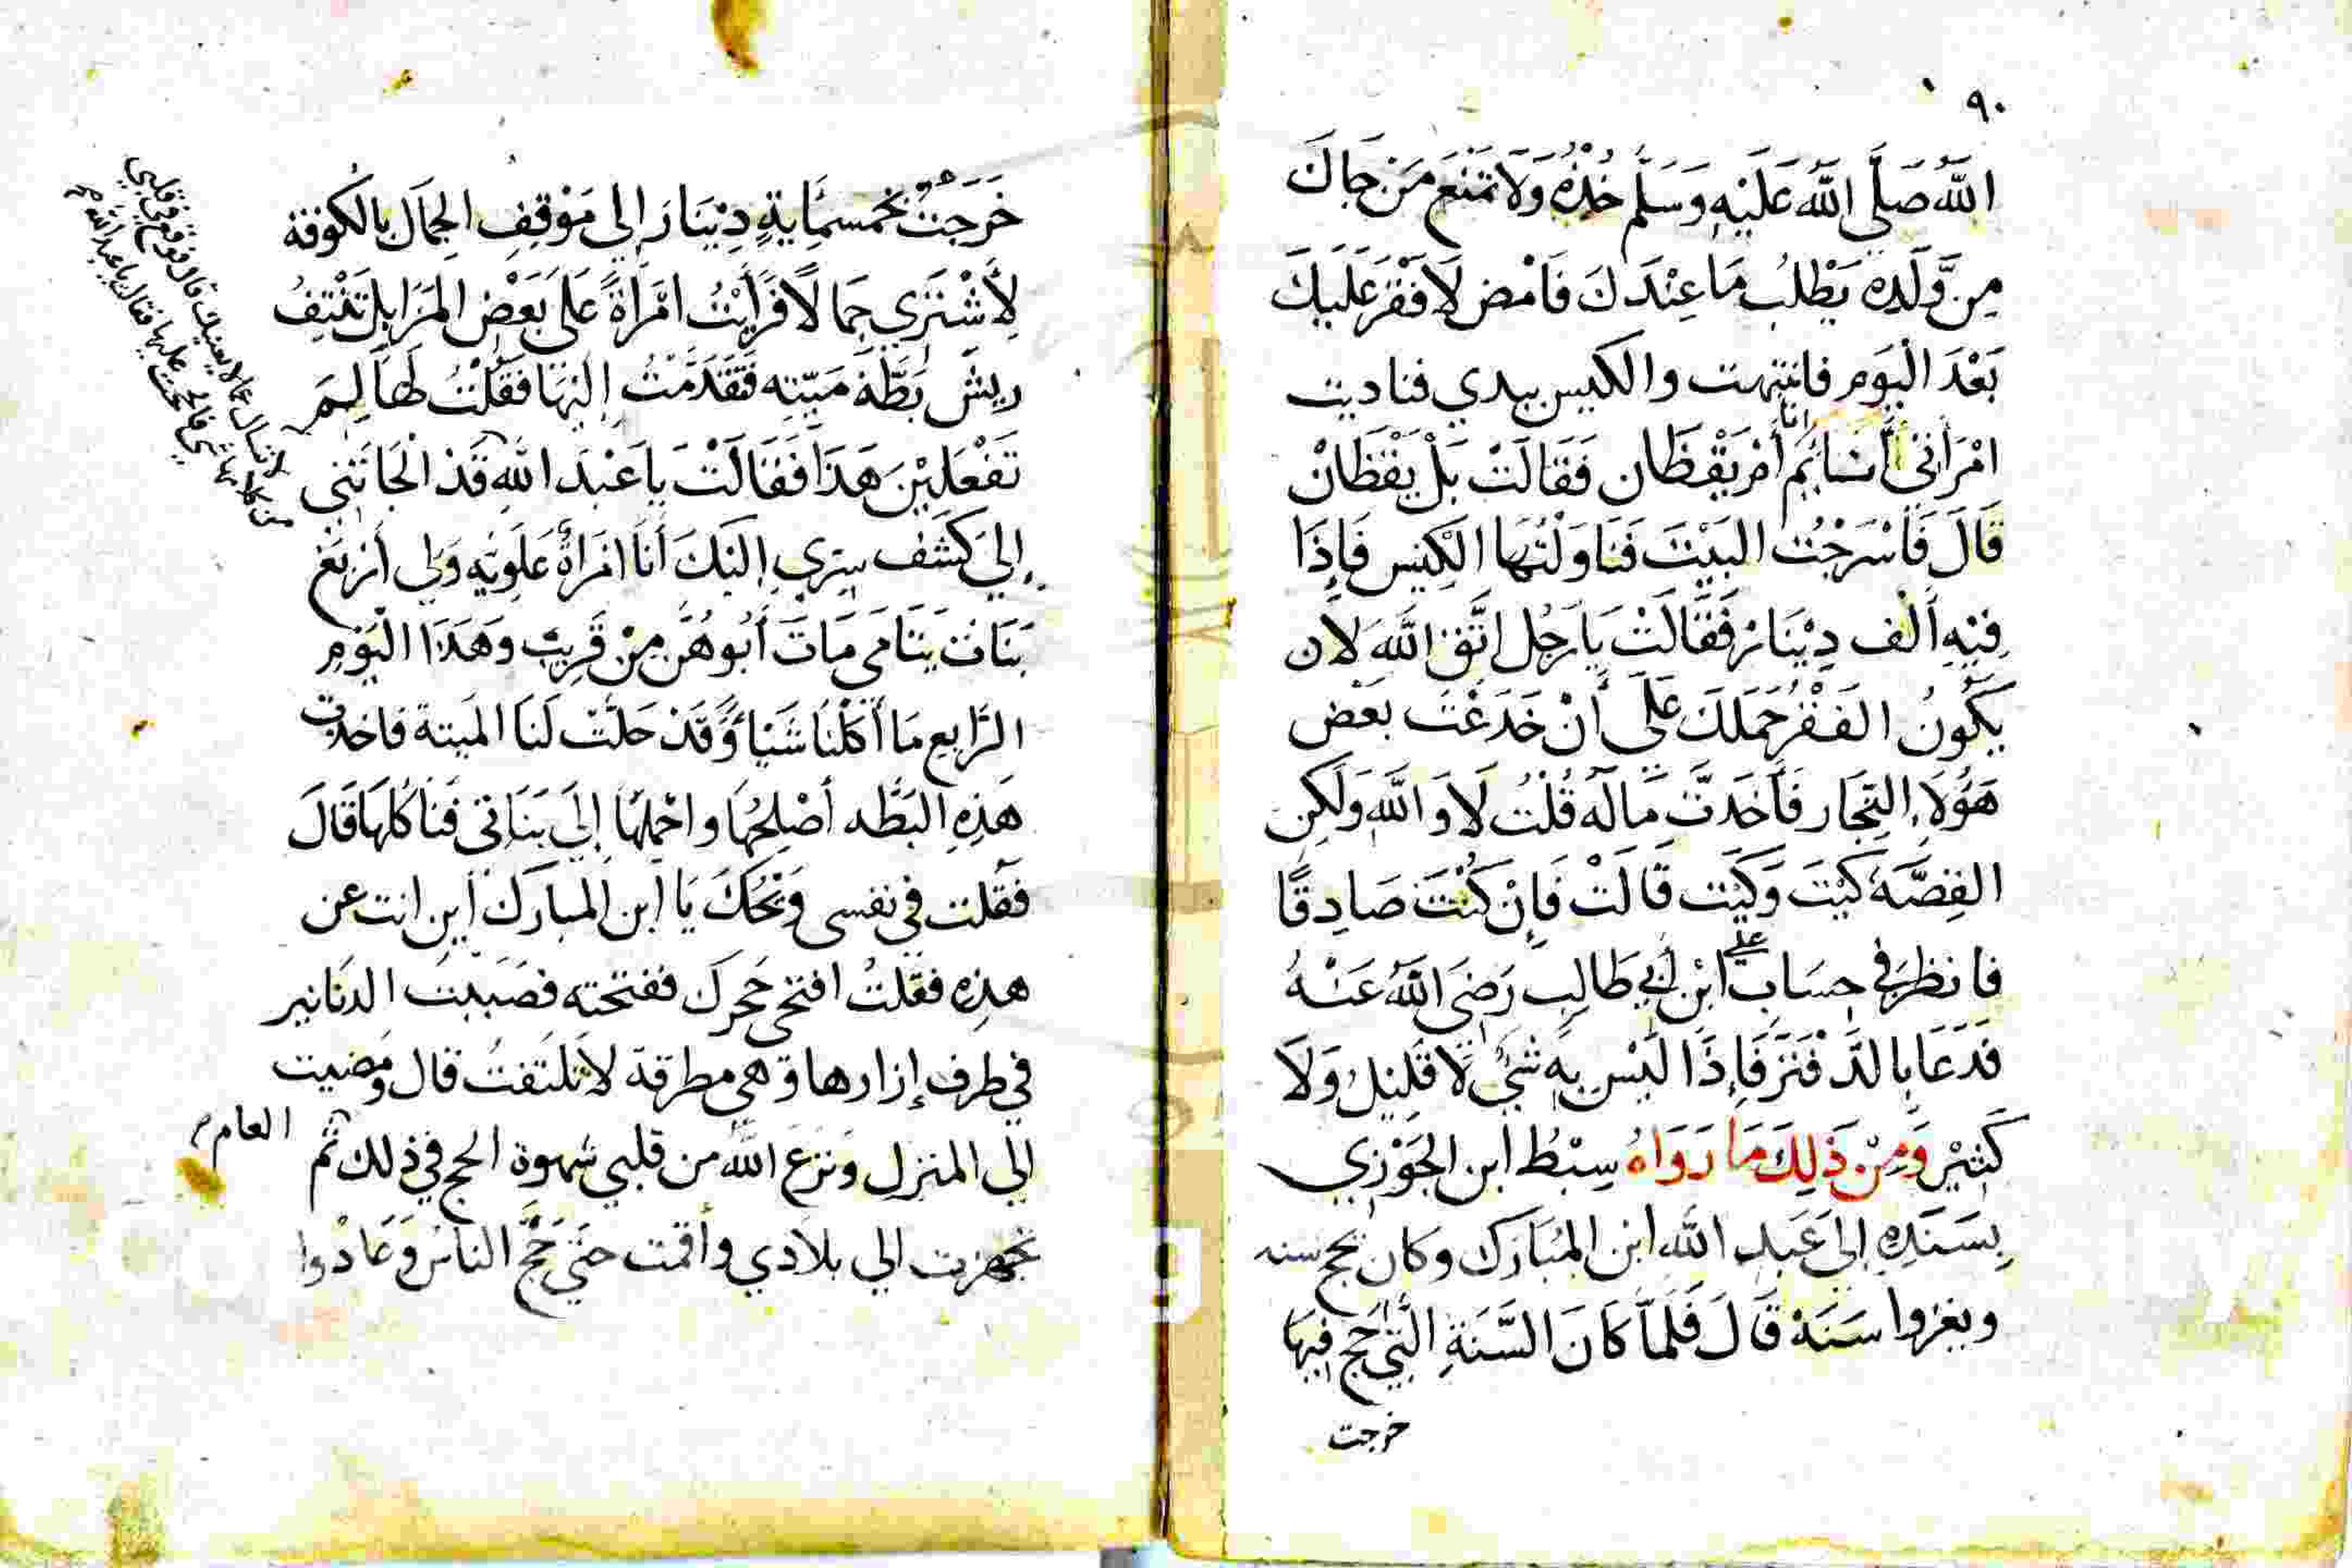 ٩٠
الله صَلَّي اللهُ عَلَيْهِ وَسَلَّم خُذْهُ وَلَا تَمْنَعَ مَن جَاكَ
مِن وَّلَدِهِ يَطْلُب مَا عِنْدَكَ فَامْضِ لَا فَقْرَ عَلَيكَ
بَعْدَ الْيَوَمِ فانتبهت والكيس بيدي فناديت
امْرَأتِى أَنَائِم أنا أَمْ يَقْظَان فَقَالَتْ بَلْ يَقْظَانْ
قَالَ فَأَسْرَجْتُ البَيْتَ فَنَاوَلْتُهَا الْكِيس فَإِذَا
فِيْهِ أَلْف دِيْنَار فَقَالَتْ يَا رَجُل اتَّقِ اللَّهَ لَان
يَكُونُ الفَقْرُ حَمَلَكَ عَلَي أَنْ خَدَعْتَ بَعْض
هَؤُلَاءِ التِجَار فَأَخَذتَ مَالَهُ قُلْتُ لَا وَاللهِ وَلَكِن
القِصَّةَ كَيْتَ وَكَيْت قَالَتْ فَإِنْ كُنْتَ صَادِقًا
فانظر في حِسَاب علي ابْن أَبِي طَالِب رَضِيَ اللَّهُ عَنْهُ
فَدَعَا بِالدَّفْتَر فَإِذَا لَيْسَ بِهِ شَيْ لَا قَلِيْلٌ وَلَا
كَثِيْر وَمِنْ ذَلِكَ مَا رَوَاهُ سِبْطُ ابن الجَوْزِي
بِسَنَدِهِ إلى عَبدِ الله ابن المُبَارَك وكان يحج سنه
ويغزوا سَنَة قَالَ فَلَمَّا كَانَ السَّنَةِ الَّتِي حَج فِيهَا
خرجت
خَرَجْتُ بخمسمِايةِ دِيْنَار إلي مَوْقِفِ الجِمَال بالكُوفة
لِأَشْتَرِي جِمَالًا فَرَأَيْتُ امْرَأةً عَلَى بَعْضِ المَزَابِل تَنْتِفُ
رِيشَ بَطَّة مَيِّتِه فَتَقَدَّمْتُ إلَيْهَا فَقُلْتُ لَهَا لِمَ
تَفْعَلِيْنَ هَذَا فَقَالَتْ يَا عَبْدَ الله قَدْ الْجَأتَنِي
إلي كَشْف سِرِي إلَيْكَ أَنَا امْرَأةٌ عَلَوِيَّه وَلِي أَرْبَعَ
بَنَات يَتَامَي مَاتَ أَبُوهُنَّ مِنْ قَرِيب وَهَذَا الْيَوْمِ
الرَّابع مَا أَكَلْنَا شَيْأً وَقَدْ حَلَّتْ لَنَا المَيتة فاخذت
هَذِهِ البَطَّه أصْلِحُهَا واحْمِلْهَا إِلَي بَنَاتِي فَنَاكُلهَا قَالَ
فقلت في نفسى وَيْحَكَ يَا ابن المبارك أين انت عن
هذِه فقلتُ افتحى حَجرك ففتحته فصَبَبْت الدنَانير
في طرف إزارها وهي مطرقة لا تلتفتُ قال ومضيت
الي المنزل ونزع الله من قلبي شهوة الحج في ذلك العام ثُم
تجهزت الي بلادي وأقمت حتَّي حَجَّ الناسُ وَعَادْوا
لا تسال عما لا يعنيك قال فوقع في قلبي
من كلامها شي فالححت عليها فقالت يا عبد الله م